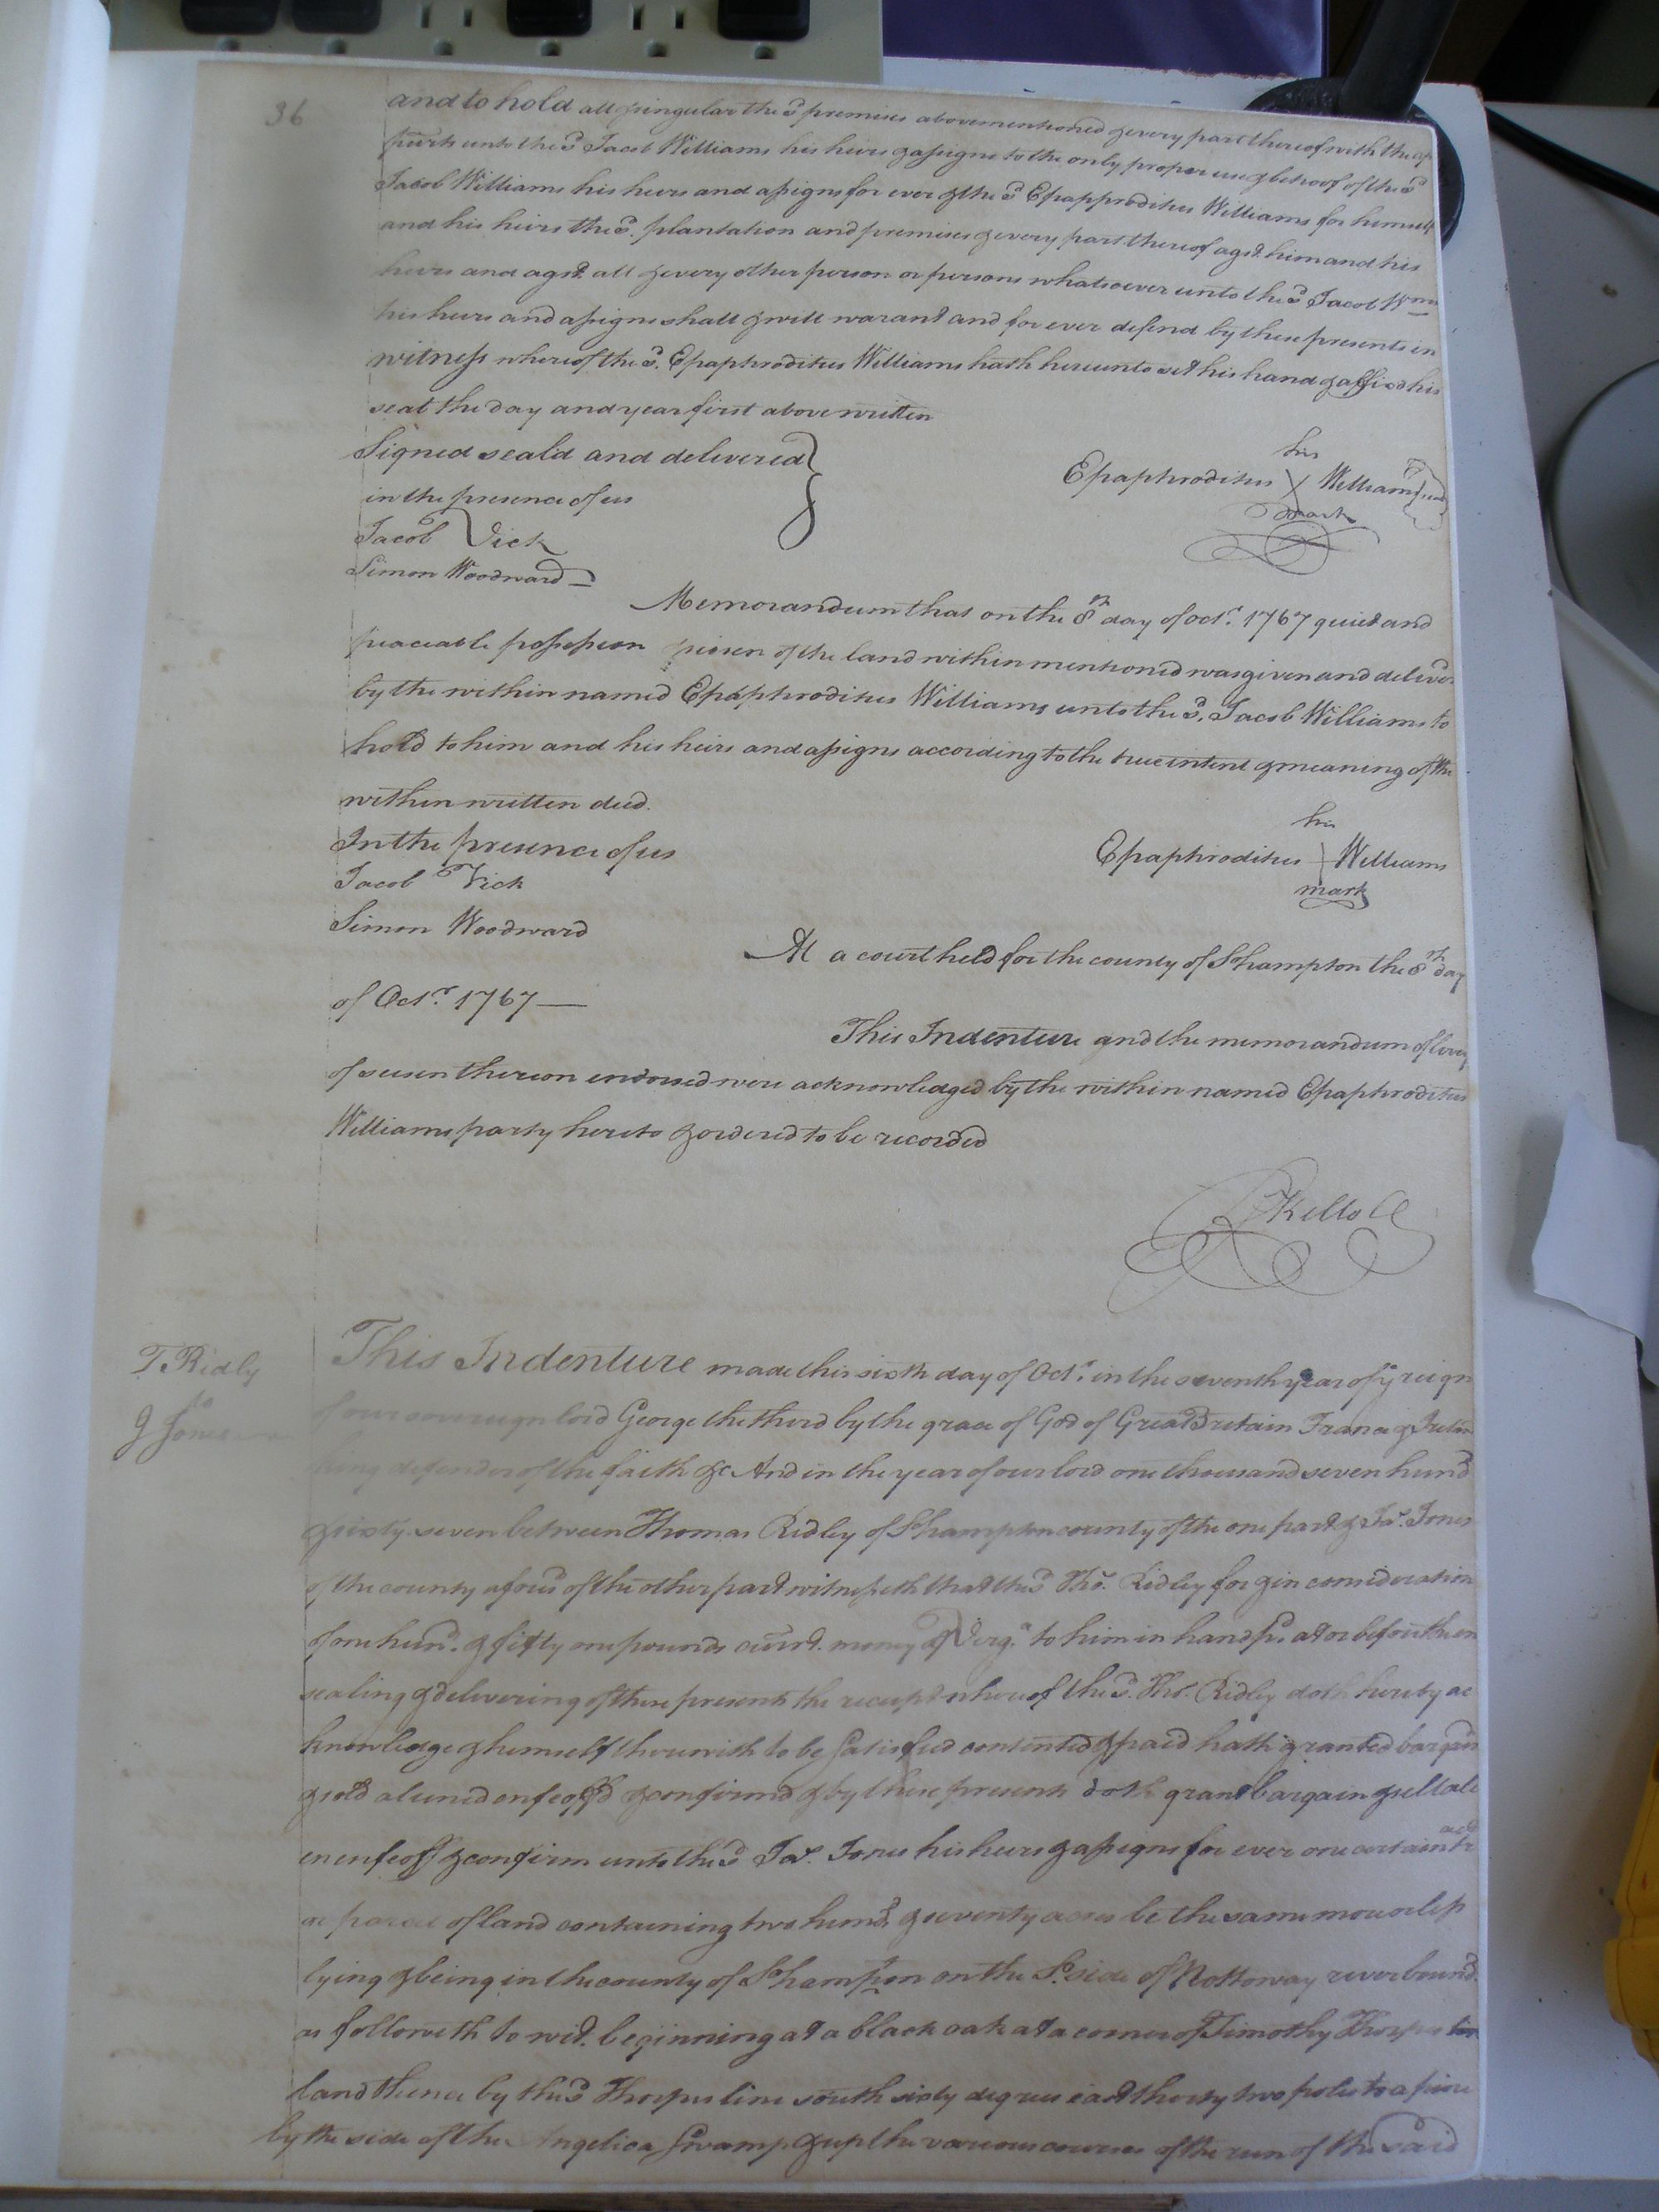 36
and to hold all & singular the sd premises abovementioned & every part thereof with the ap
purts unto the sd Jacob Williams his heirs & assigns to the only proper use & behoof of the sd
Jacob Williams his heirs and assigns for ever & the sd Epapproditus Williams for himself
and his heirs the sd. plantation and premises & every part thereof agst. him and his
heirs and agst. all & every other person or persons whatsoever unto the sd Jacob Wms
his heirs and assigns shall & will warant and for ever defend by these presents in
witness whereof the sd. Epaphroditus Williams hath hereunto set his hand & affixd his
seal the day and year first above written
Signed seald and delivered
in the presence of us
Jacob Vick
Simon Woodward
his
Epaphroditus X Williams seal
mark
Memorandum that on the 8th day of octr. 1767 quiet and
peaceable possession of the land within mentioned was given and deliverd
by the within named Epaphroditus Williams unto the sd. Jacob Williams to
hold to him and his heirs and assigns according to the true intent & meaning of the
within written deed.
In the presence of us
Jacob Vick
Simon Woodward
his
Epaphroditus Williams
mark
At a court held for the county of Shampton the 8th day
of Octr. 1767
This Indenture and the memorandum of livery
of seisen thereon endorsed were acknowledged by the within named Epaphroditus
Williams party hereto & ordered to be recorded
R Kello Cl
T. Ridly
to
J Jones
This Indenture made this sixth day of Octr. in the seventh year of ye reign
of our sovereign lord George the third by the grace of God of Great Britain France & Ireland
king defender of the faith &c And in the year of our lord one thousand seven hund
& sixty seven between Thomas Ridley of Shampton county of the one part & Jas. Jones
of the county afores of the other part witnesseth that the sd Thos. Ridley for & in consideration
of one hund. & fifty one pounds curt. money of Virga. to him in hand pd. at or before the en
sealing & delivering of these presents the receipt whereof the sd. Thos. Ridley doth hereby ac
knowledge & himself therewith to be satisfied contented & paid hath granted bargaind
& sold aliened enfeoffd & confirmd & by these presents doth grant bargain & sell ali
en enfeoff & confirm unto the sd Jas. Jones his heirs & assigns for ever one certain tract
or parcel of land containing two hund. & seventy acres be the same more or less
lying & being in the county of Shampton on the S. side of Nottoway river bound.
as followeth to wit. beginning at a black oak at a corner of Timothy Thorps
land thence by the sd Thorps line south sixty degrees east thirty two poles to a pine
by the side of the Angelica Swamp & up the various courses of the run of the said